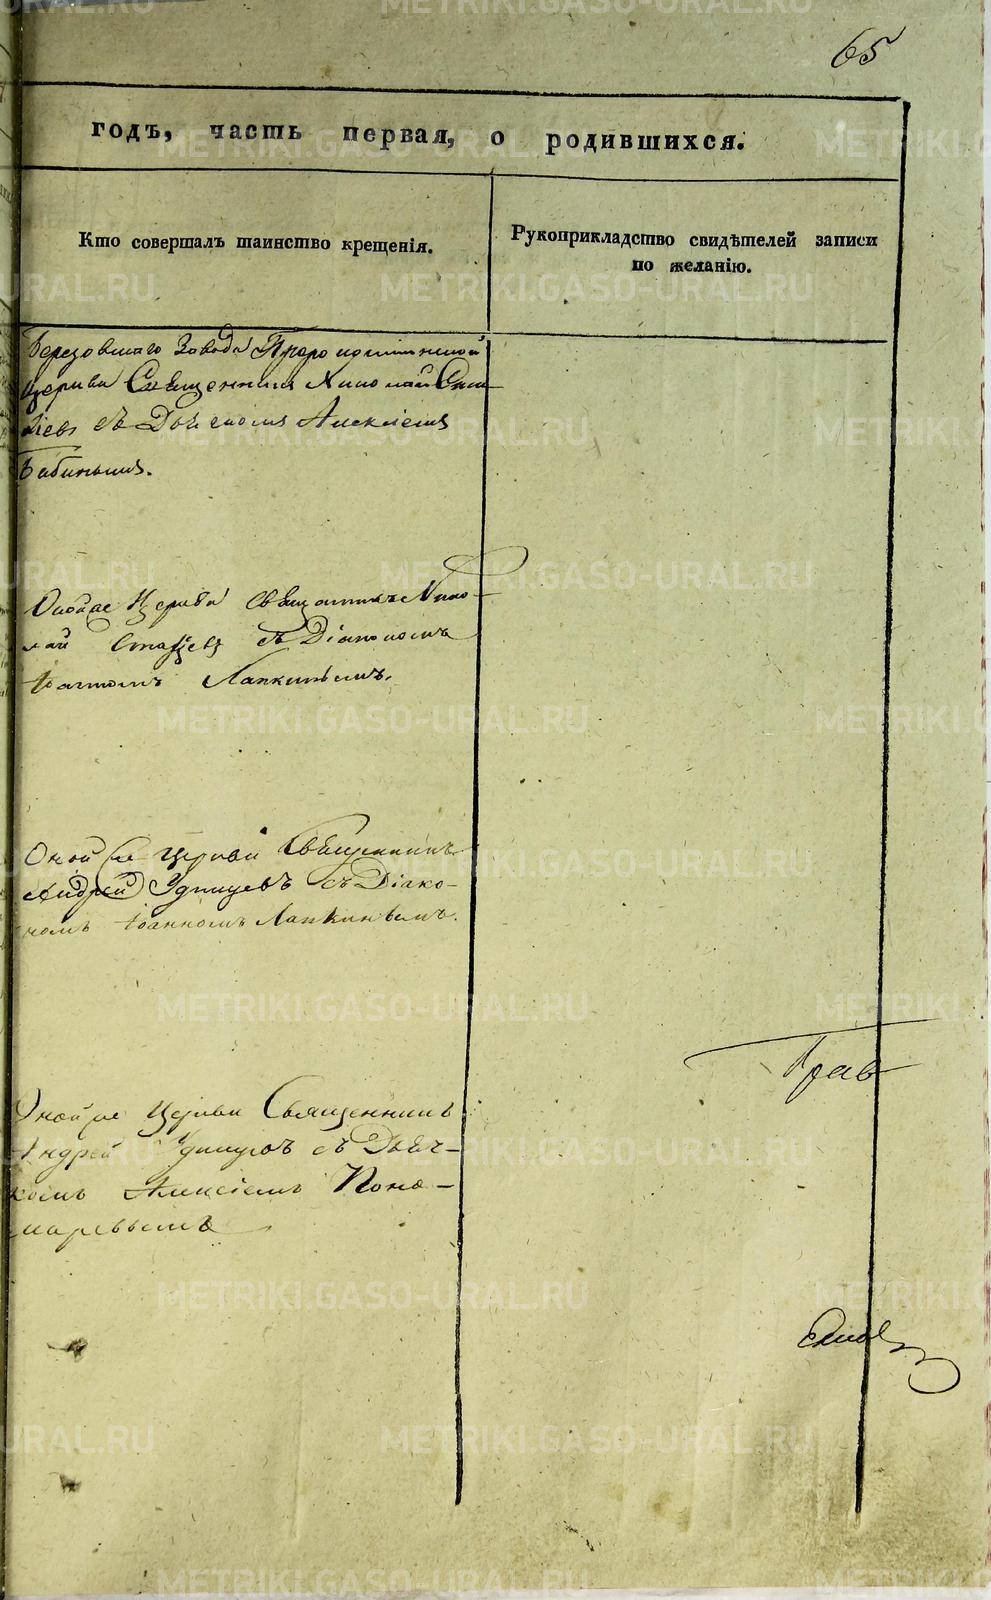 65
годъ, часть первая, о родившихся.
Кто совершалъ таинство крещенія.
Рукоприкладство свидѣтелей записи
по желанію.
Березовскаго Завода Пророкоильинской
Церкви Священникъ Николай
съ Дьячкомъ Алексіемъ
Бабинымъ.
Оной же Церкви Священникъ Нико-
лай съ Діакономъ
Іоанномъ Лапкинымъ.
Оной же Церкви Священникъ
Андрей Удинцевъ съ Діако-
номъ Іоанномъ Лапкинымъ.
Оной же Церкви Священникъ
Андрей Удинцовъ съ Дьяч-
комъ Алексіемъ Поно-
маревымъ
METRIKI.GASO-URAL.RU